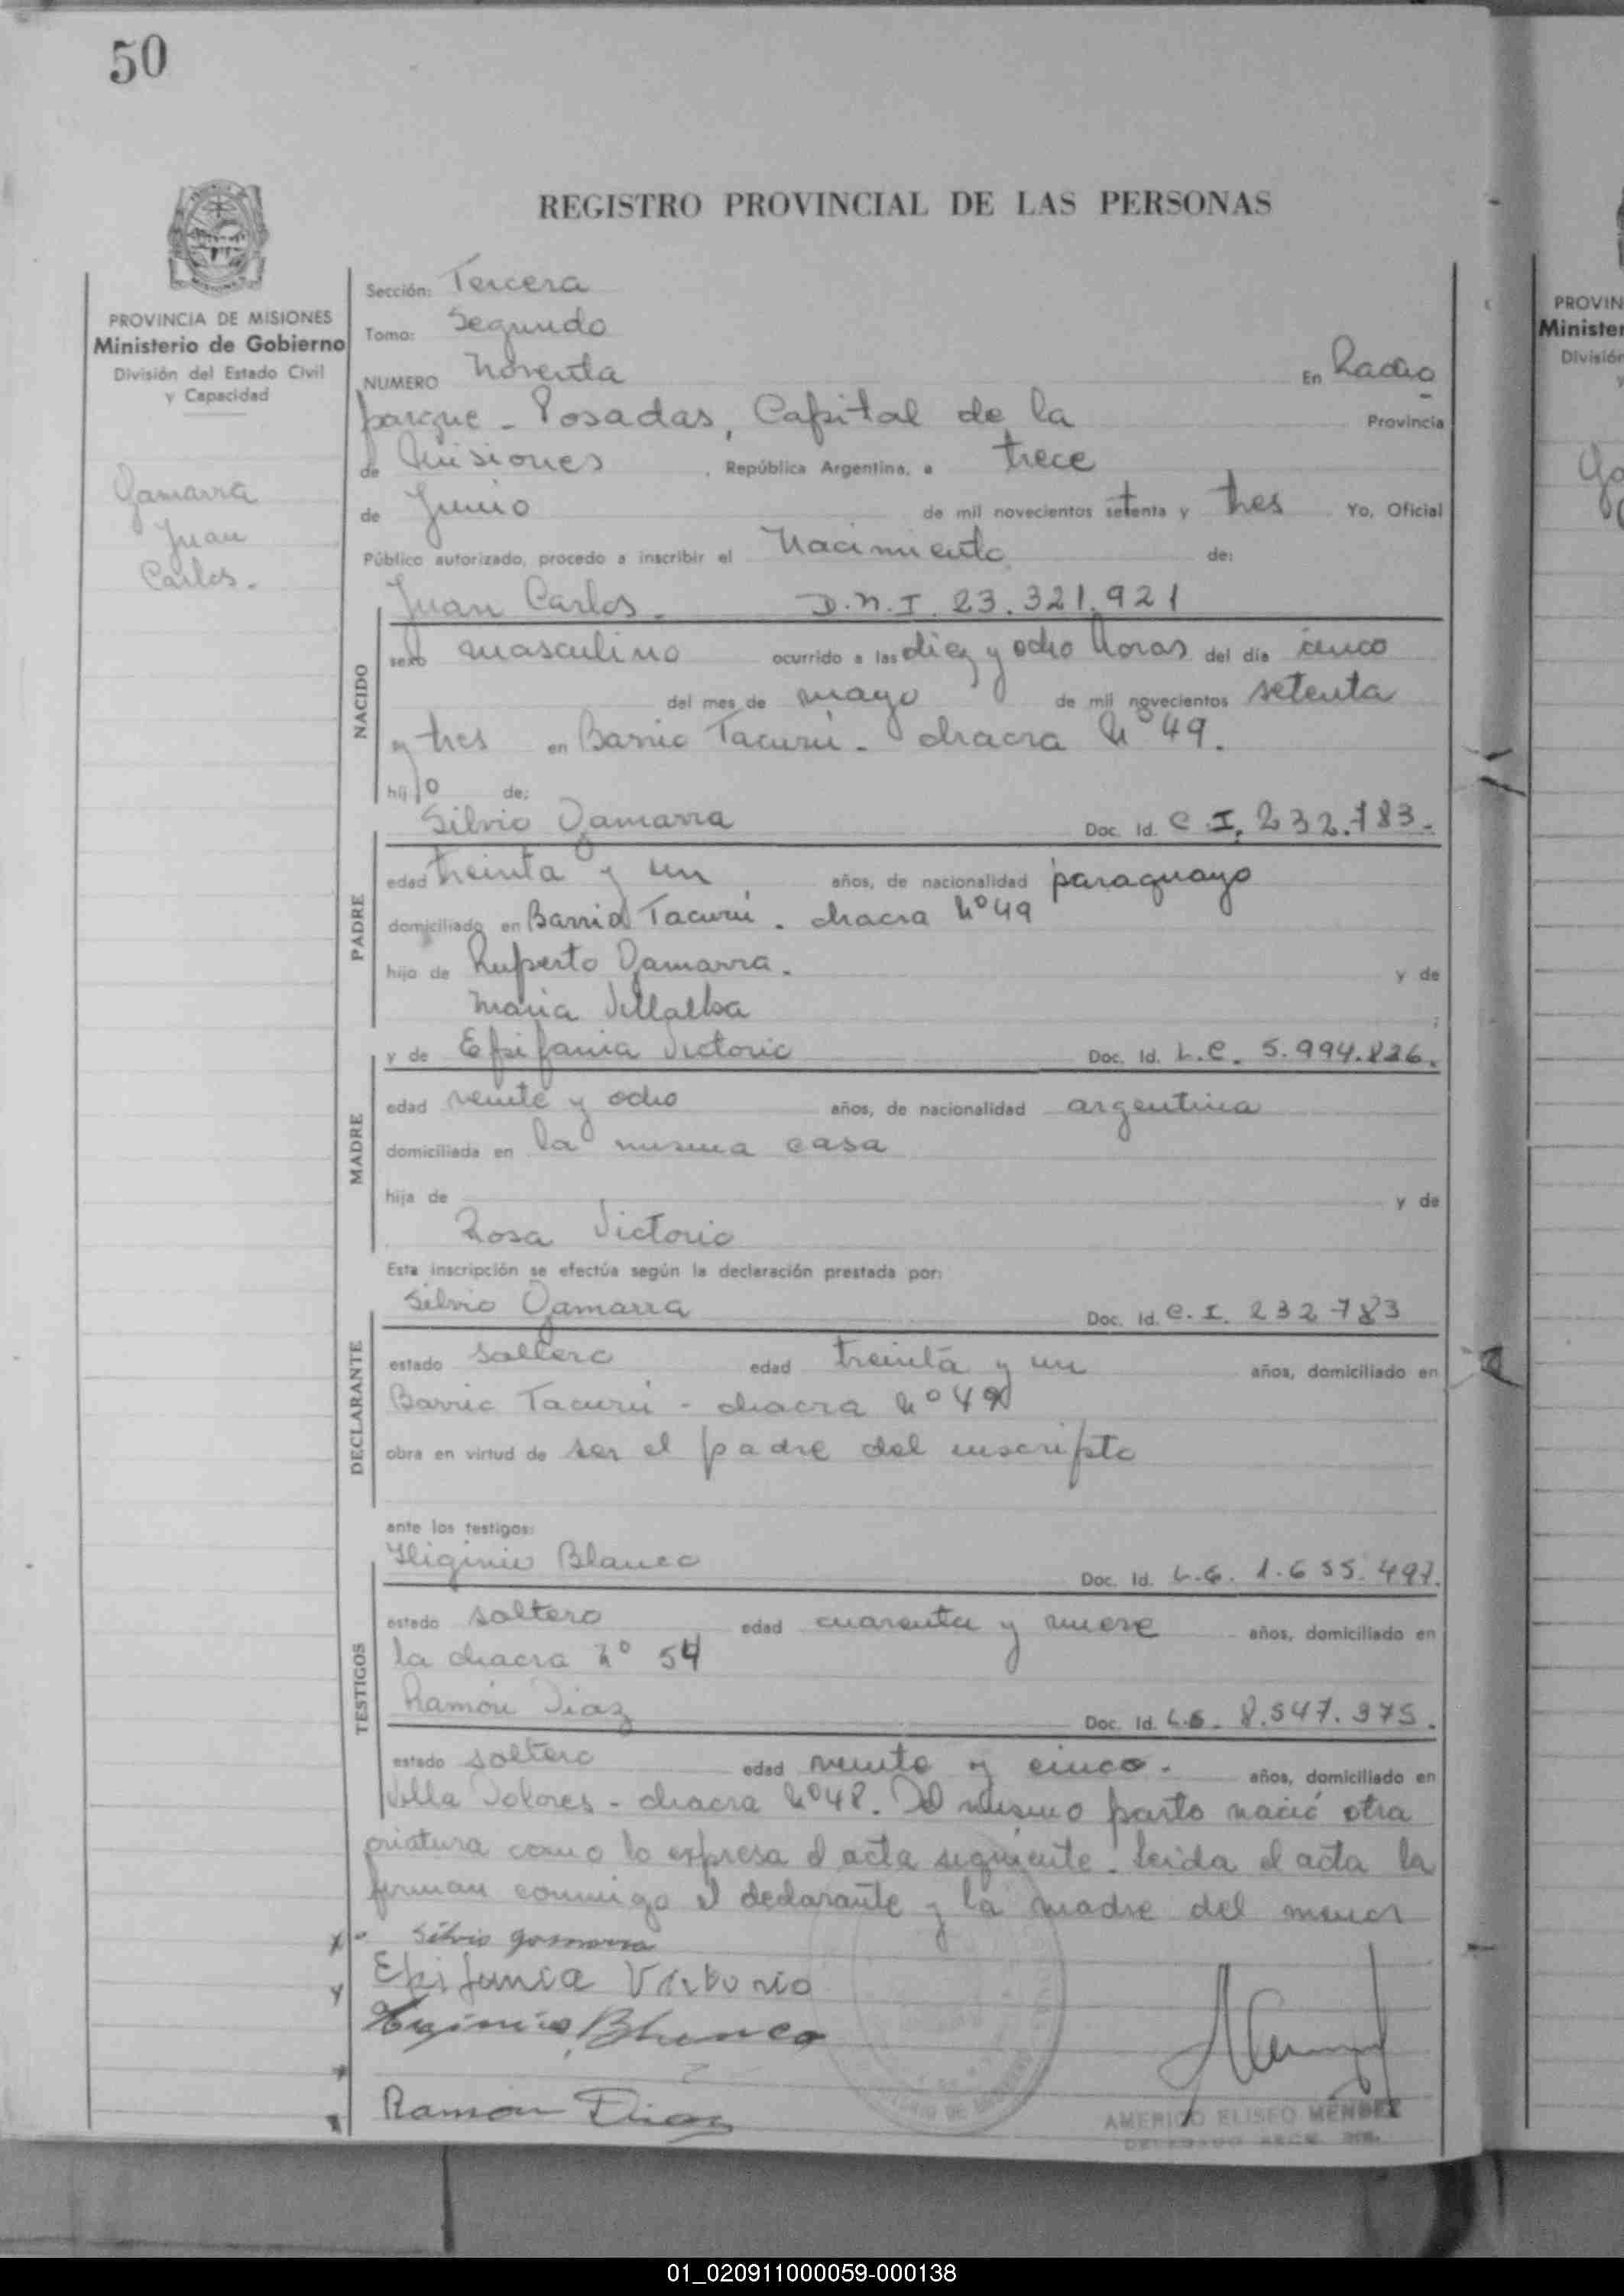 50
REGISTRO PROVINCIAL DE LAS PERSONAS
PROVINCIA DE MISIONES
Ministerio de Gobierno
División del Estado Civil
y Capacidad
Gamarra
Juan
Carlos.-
Sección: Tercera
Tomo: Segundo
NUMERO Noventa En Radio
parque - Posadas, Capital de la Provincia
de Misiones, República Argentina, a trece
de Junio de mil novecientos setenta y tres Yo, Oficial
Público autorizado, procedo a inscribir el Nacimiento de:
Juan Carlos.- D.N.I. 23.321.921
NACIDO
sexo masculino ocurrido a las diez y ocho horas del día cinco
del mes de mayo de mil novecientos setenta
y tres en Barrio Tacurú - chacra Nº 49.
hijo de:
Silvio Gamarra Doc. Id. C.I. 232.783.-
PADRE
edad treinta y un años, de nacionalidad paraguayo
domiciliado en Barrio Tacurú - chacra Nº 49
hijo de Ruperto Gamarra. y de
Maria Villalba ;
y de Epifania Victorio Doc. Id. L.C. 5.994.826.
MADRE
edad veinte y ocho años, de nacionalidad argentina
domiciliada en la misma casa
hija de y de
Rosa Victorio
Esta inscripción se efectúa según la declaración prestada por:
Silvio Gamarra Doc. Id. C.I. 232783
DECLARANTE
estado soltero edad treinta y un años, domiciliado en
Barrio Tacurú - chacra Nº 49
obra en virtud de ser el padre del inscripto
ante los testigos:
Higinio Blanco Doc. Id. L.E. 1.655.497.
TESTIGOS
estado soltero edad cuarenta y nueve años, domiciliado en
la chacra Nº 54
Ramón Diaz Doc. Id. L.E. 8.547.375.
estado soltero edad veinte y cinco. años, domiciliado en
Villa Dolores - chacra Nº 48. Del mismo parto nació otra
criatura como lo expresa el acta siguiente. Leida el acta la
firman conmigo el declarante y la madre del menor
Silvio Gamarra
Epifania Victorio
Higinio Blanco
Ramon Diaz
AMERICO ELISEO MÉNDEZ
PROVIN
Minister
División
01_020911000059-000138